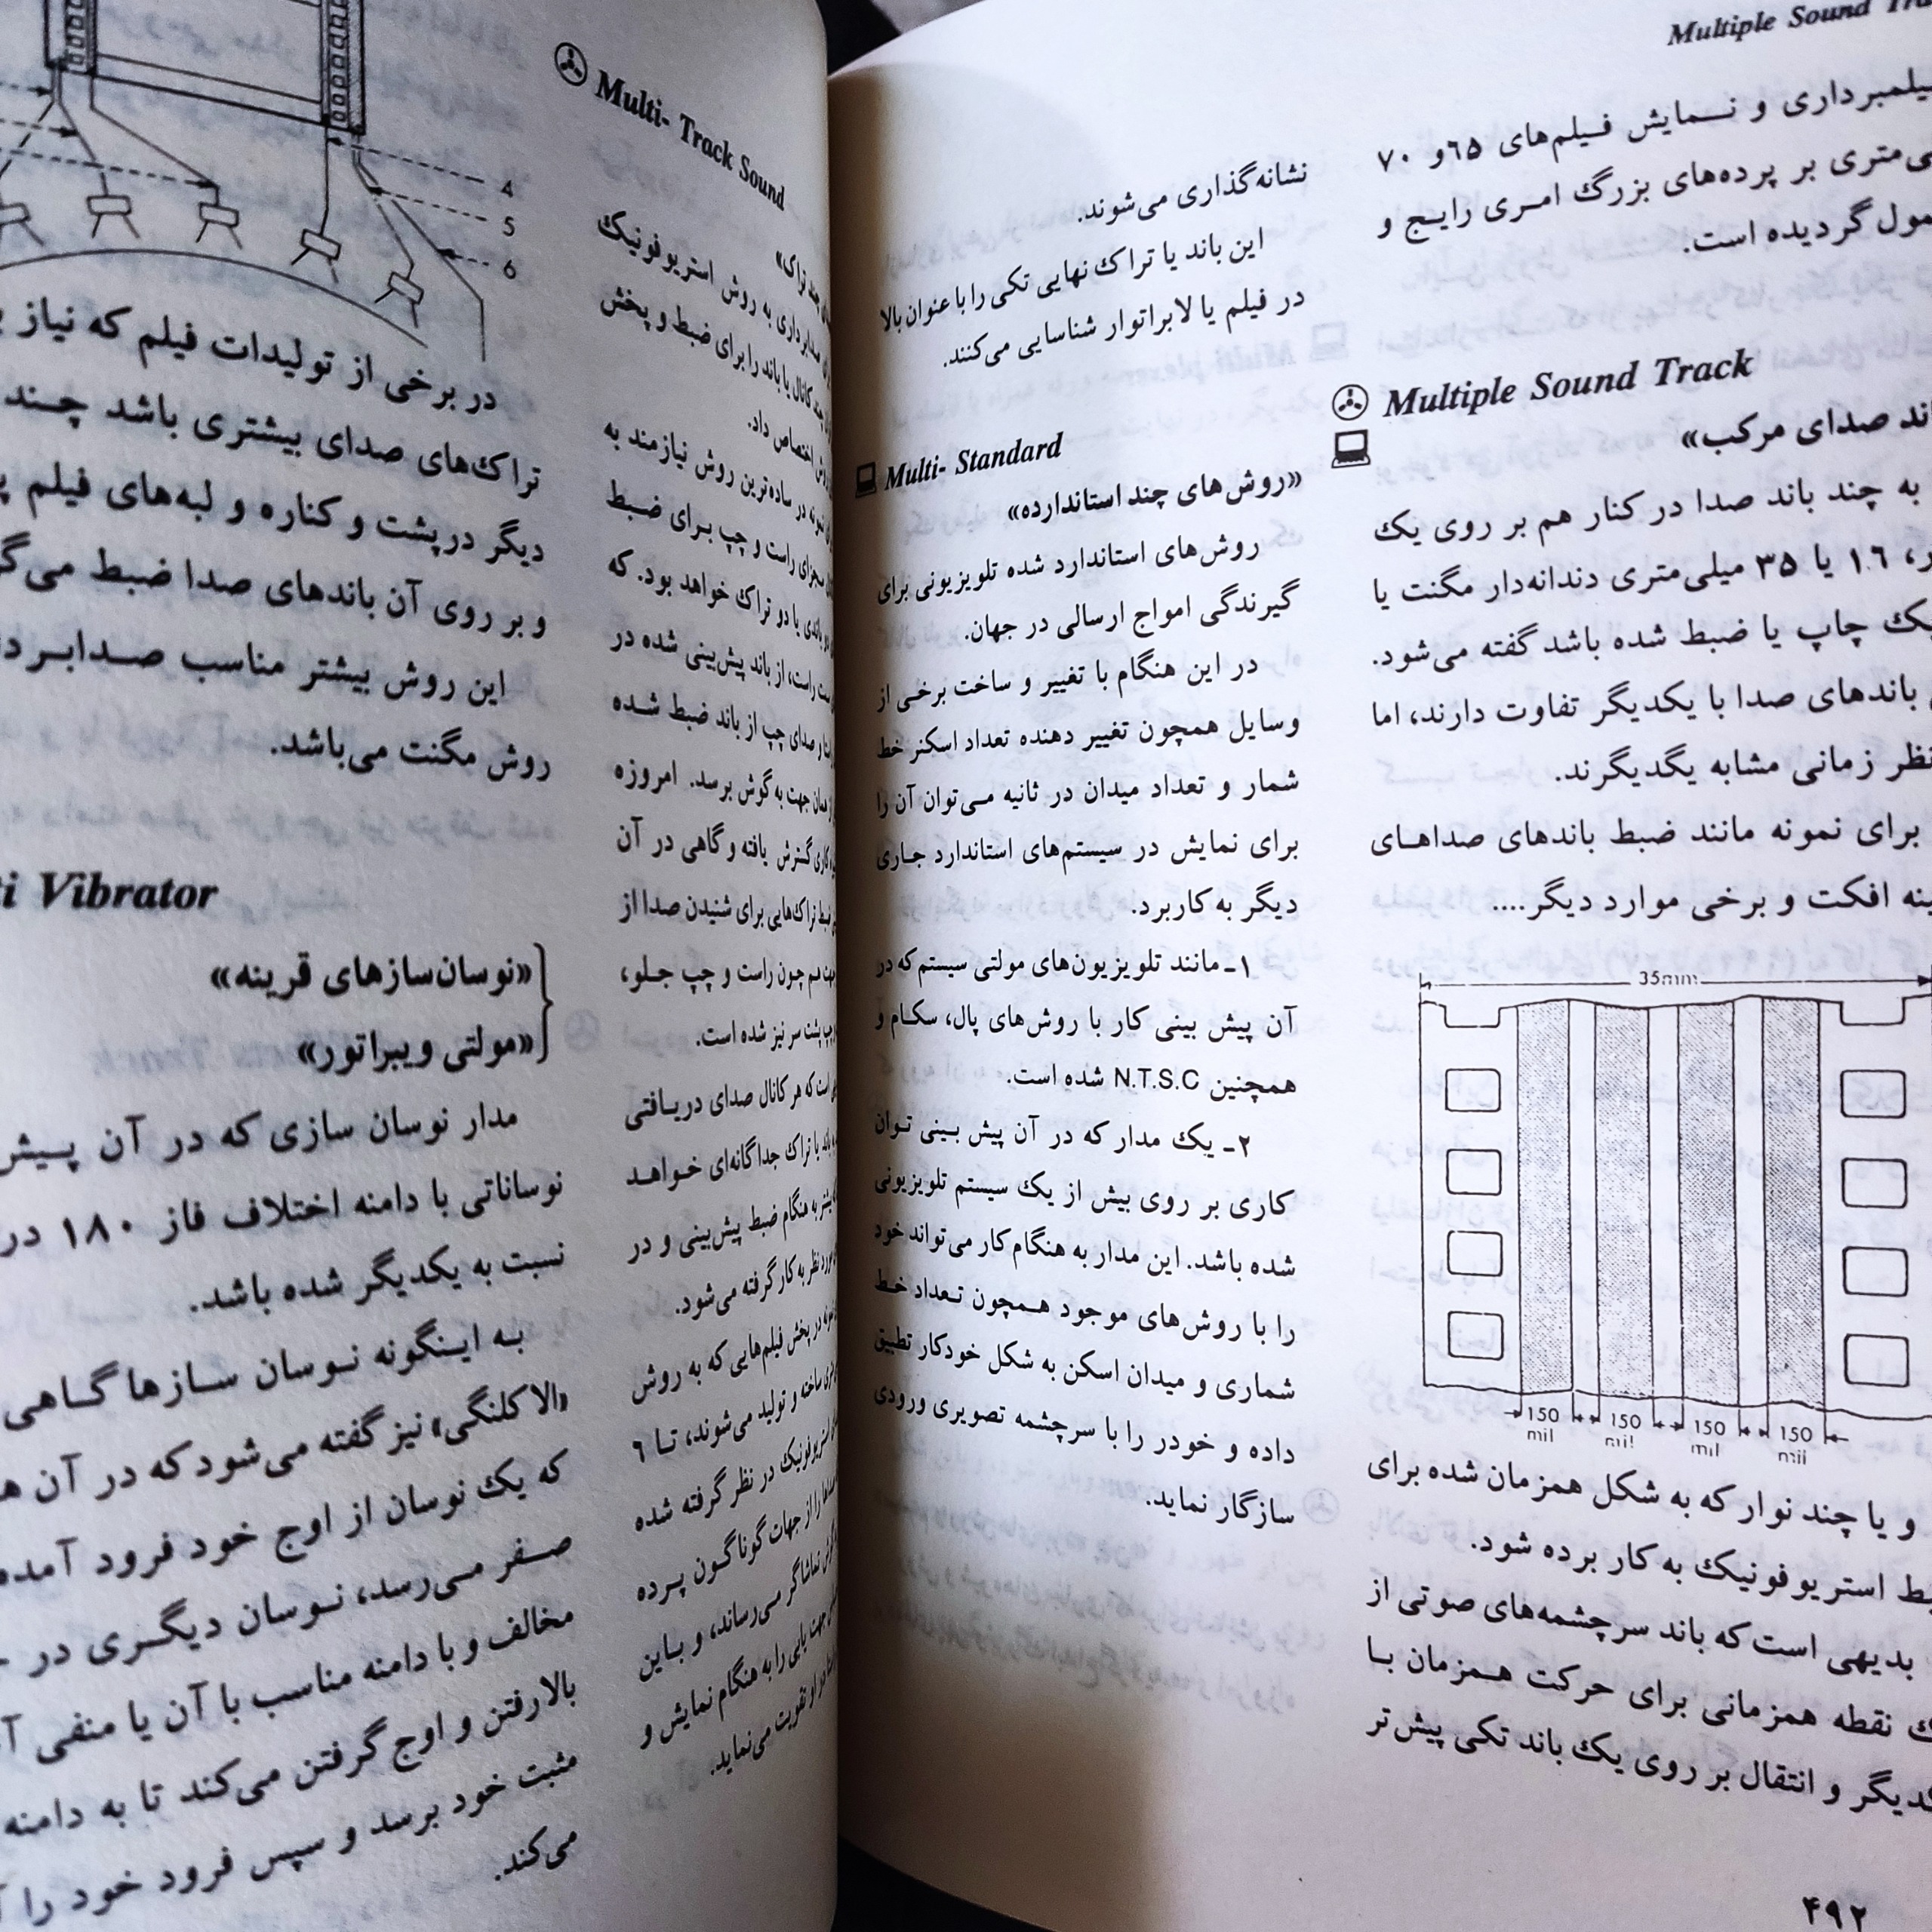 Multiple Sound
فیلمبرداری و نــمایش فــیلم‌های ۶۵و ۷۰
بر پرده‌های بزرگ امـری رایـج و
گردیده است.
Multiple Sound Track
صدای مرکب»
به چند باند صدا در کنار هم بر روی یک
۱۶ یا ۳۵ میلی‌متری دندانه‌دار مگنت یا
چاپ یا ضبط شده باشد گفته می‌شود.
باندهای صدا با یکدیگر تفاوت دارند، اما
نظر زمانی مشابه یگدیگرند.
برای نمونه مانند ضبط باندهای صداهـای
افکت و برخی موارد دیگر....
35mm
150 mil 150 mil 150 mil 150 mil
و یا چند نوار که به شکل همزمان شده برای
استریوفونیک به کار برده شود.
بدیهی است که باند سرچشمه‌های صوتی از
نقطه همزمانی برای حرکت هـمزمان بـا
و انتقال بر روی یک باند تکی پیش‌تر
نشانه‌گذاری می‌شوند.
این باند یا تراک نهایی تکی را با عنوان بالا
در فیلم یا لابراتوار شناسایی می‌کنند.
Multi- Standard
«روش‌های چند استاندارده»
روش‌های استاندارد شده تلویزیونی برای
گیرندگی امواج ارسالی در جهان.
در این هنگام با تغییر و ساخت برخی از
وسایل همچون تغییر دهنده تعداد اسکنر خط
شمار و تعداد میدان در ثانیه مـی‌توان آن را
برای نمایش در سیستم‌های استاندارد جـاری
دیگر به کار برد.
۱ـ مانند تلویزیون‌های مولتی سیستم که در
آن پیش بینی کار با روش‌های پال، سکـام و
همچنین N.T.S.C شده است.
۲ـ یک مدار که در آن پیش بـینی تـوان
کاری بر روی بیش از یک سیستم تلویزیونی
شده باشد. این مدار به هنگام کار می‌تواند خود
را با روش‌های موجود هـمچون تـعداد خـط
شماری و میدان اسکن به شکل خودکار تطبیق
داده و خودر را با سرچشمه تصویری ورودی
سازگار نماید.
۴۹۲
Multi- Track Sound
تراک»
صدابرداری به روش استریوفونیک
چند کانال یا باند را برای ضبط و پخش
اختصاص داد.
نمونه در ساده‌ترین روش نیازمند به
راست و چپ بـرای ضـبط
باندی یا دو تراک خواهد بود. که
راست، از باند پیش‌بینی شده در
و صدای چپ از باند ضبط شـده
همان جهت به گوش برسد. امروزه
گسترش یافته و گاهی در آن
تراک‌هایی برای شنیدن صدا از
هـم چون راست و چپ جـلو،
چپ پشت سر نیز شده است.
است که هر کانال صدای دریـافتی
باند یا تراک جداگانه‌ای خـواهـد
به هنگام ضبط پیش‌بینی و در
مورد نظر به کار گرفته می‌شود.
در پخش فیلم‌هایی که به روش
ساخته و تولید می‌شوند، تـا ۶
استریوفونیک در نظر گرفته شده
را از جهات گوناگـون پـرده
تماشاگر مـی‌رساند، و بـاین
جهت یابی را به هنگام نمایش و
تقویت می‌نماید.
4
5
6
در برخی از تولیدات فیلم که نیاز
تراک‌های صدای بیشتری باشد چـند
دیگر در پشت و کناره و لبه‌های فیلم
و بر روی آن باندهای صدا ضبط
این روش بیشتر مناسب
روش مگنت می‌باشد.
Vibrator
«نوسان‌سازهای قرینه»
«مولتی ویبراتور»
مدار نوسان سازی که در آن پـیش
نوساناتی با دامنه اختلاف فاز ۱۸۰
نسبت به یکدیگر شده باشد.
بـه ایـنگونه نـوسان سـازها گـاهی
«الاکلنگی» نیز گفته می‌شود که در آن
که یک نوسان از اوج خود فرود آمده
صـفر مـی‌رسد، نـوسان دیگـری در
مخالف و با دامنه مناسب با آن یا منفی
بالا رفتن و اوج گرفتن می‌کند تا به دامنه
مثبت خود برسد و سپس فرود خود را
می‌کند.